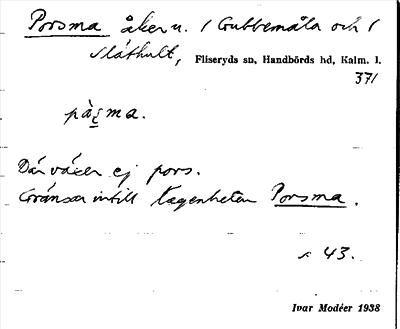 Porsma åker u. / Gubbemåla och /
Slåthult, Fliseryds sn, Handbörds hd, Kalm. l.
371
Där växer ej pors.
Gränsar intill lägenheten Porsma.
s 43.
Ivar Modéer 1938